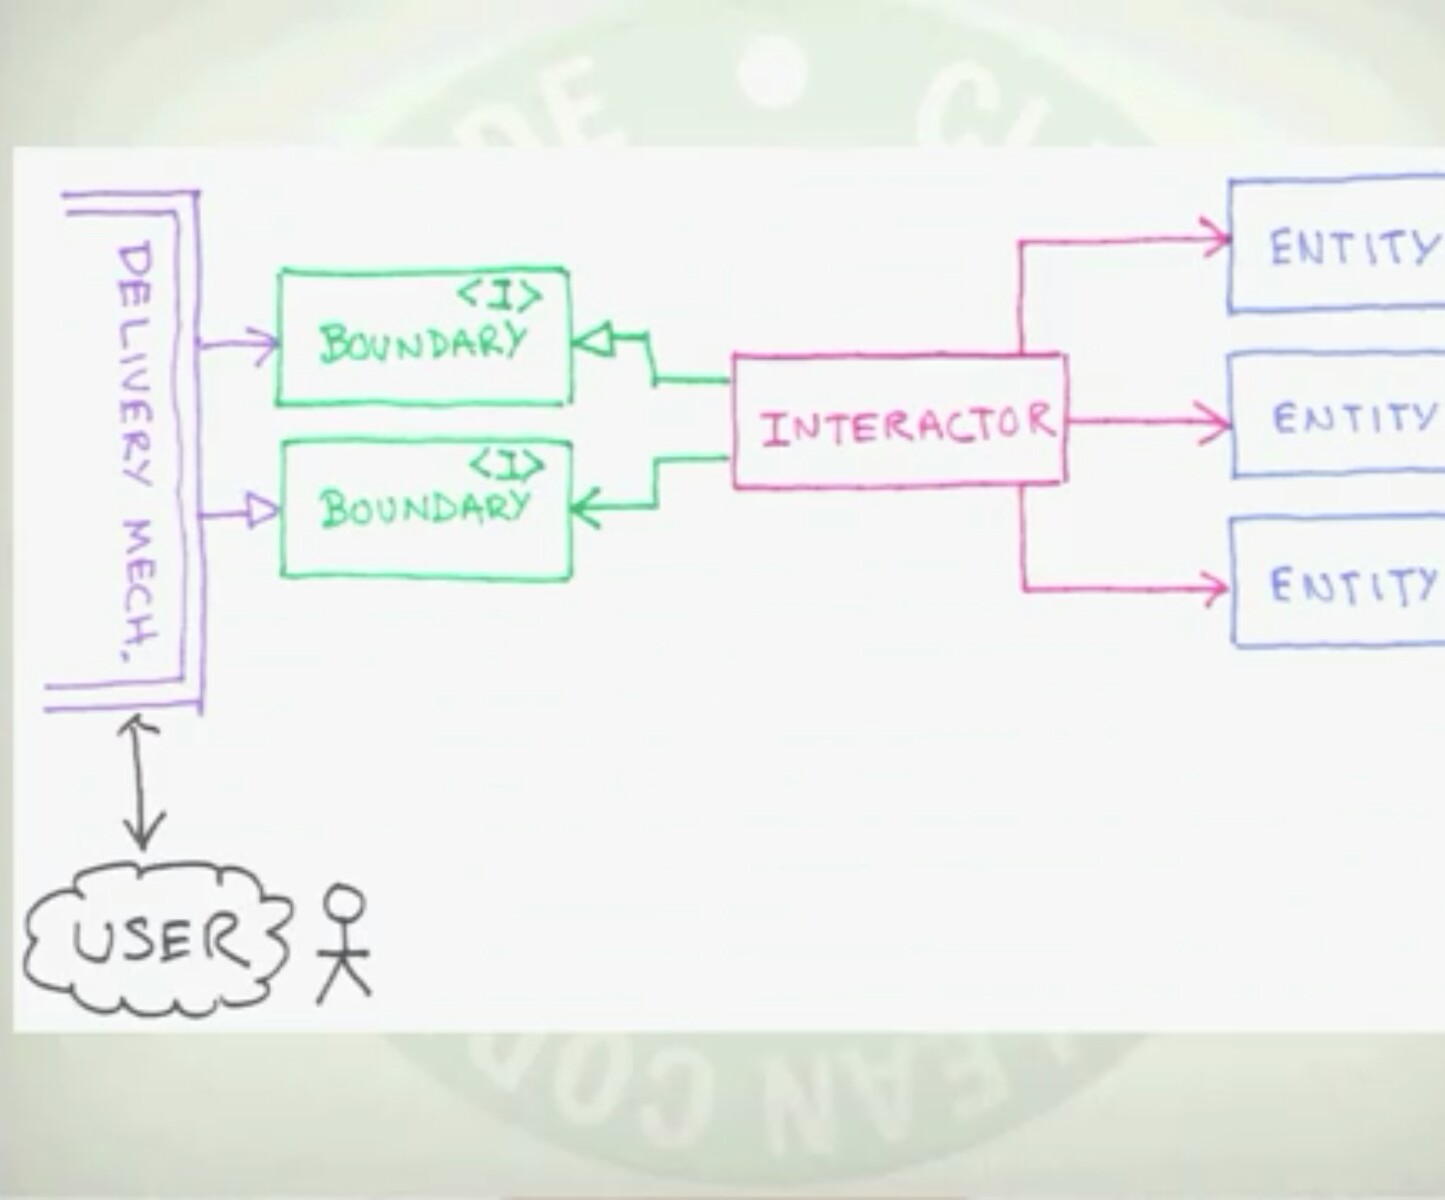 DE CL
DELIVERY MECH.
<I>
BOUNDARY
<I>
BOUNDARY
INTERACTOR
ENTITY
ENTITY
ENTITY
USER
LEAN COD